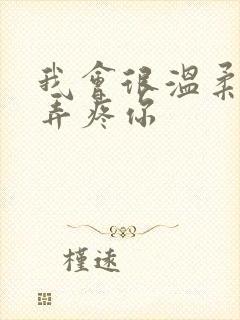 我會很溫柔
弄疼你
槿遠